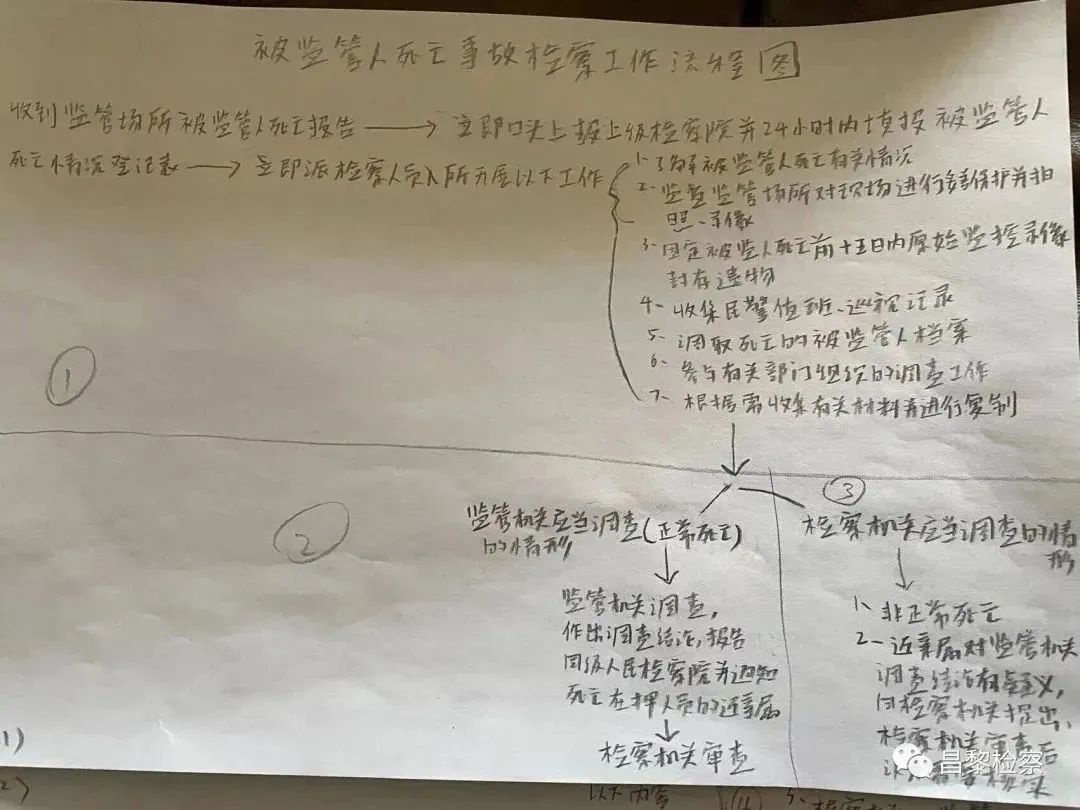 被监管人死亡事故检察工作流程图
收到监管场所被监管人死亡报告 → 立即口头上报上级检察院并24小时内填报被监管人
死亡情况登记表 → 立即派检察人员入所开展以下工作
1、了解被监管人死亡有关情况
2、监督监管场所对现场进行妥善保护并拍
照、录像
3、固定被监管人死亡前十五日内原始监控录像
封存遗物
4、收集民警值班、巡视记录
5、调取死亡的被监管人档案
6、参与有关部门组织的调查工作
7、根据需收集有关材料并进行复制
①
②
监管机关应当调查(正常死亡)
的情形
监管机关调查,
作出调查结论,报告
同级人民检察院并通知
死亡在押人员的近亲属
检察机关审查
以下内容
③
检察机关应当调查的情
形
1、非正常死亡
2、近亲属对监管机关
调查结论有异议,
向检察机关提出,
检察机关审查后
④
1)
2)
昌黎检察